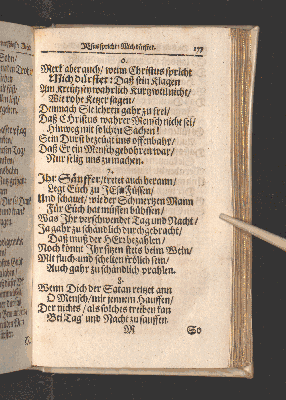 JEsus spricht: Mich dürstet. 177
6.
Merk aber auch / wenn Christus spricht
Mich dürstet: Daß sein Klagen
Am Kreutz sey wahrlich Kurtzweil nicht /
Wie rohe Ketzer sagen /
Dennoch Sie lehren gahr zu frei /
Daß Christus wahrer Mensch nicht sei /
Hinweg mit solchen Sachen!
Sein Durst bezeugt uns offenbahr /
Daß Er ein Mensch gebohren war /
Nur selig uns zu machen.
7.
Ihr Säuffer / tretet auch heran /
Legt Euch zu JEsu Füssen /
Und schauet / wie der Schmertzen Mann
Für Euch hat müssen büssen /
Was Ihr verschwendet Tag und Nacht /
Ja gahr zu schändlich durchgebracht /
Daß muß der HErr bezahlen /
Noch könnt Ihr sitzen stets beim Wein /
Mit fluch- und schelten frölich sein /
Auch gahr zu schändlich prahlen.
8.
Wenn Dich der Satan reitzet ann
O Mensch / mit jennem Hauffen /
Der nichts / als solches treiben kan
Bei Tag' und Nacht zu sauffen
M So